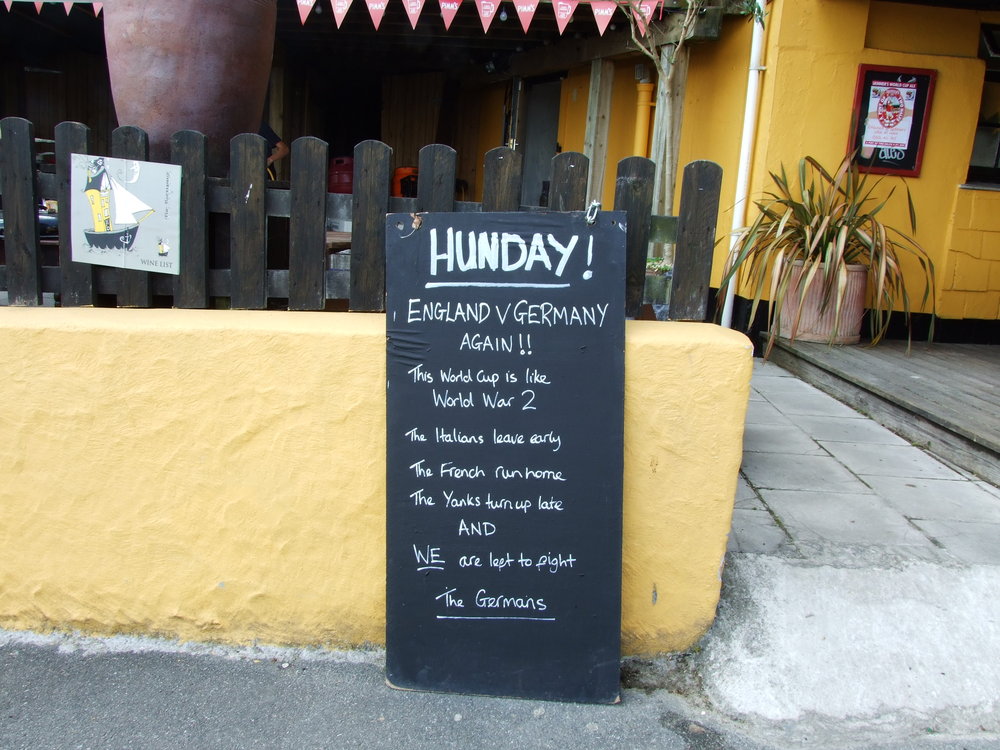 PIMM'S PIMM'S PIMM'S PIMM'S
HUNDAY!
ENGLAND V GERMANY
AGAIN!!
This World Cup is like
World War 2
The Italians leave early
The French run home
The Yanks turn up late
AND
WE are left to fight
The Germans
WINE LIST
WORLD CUP ALE